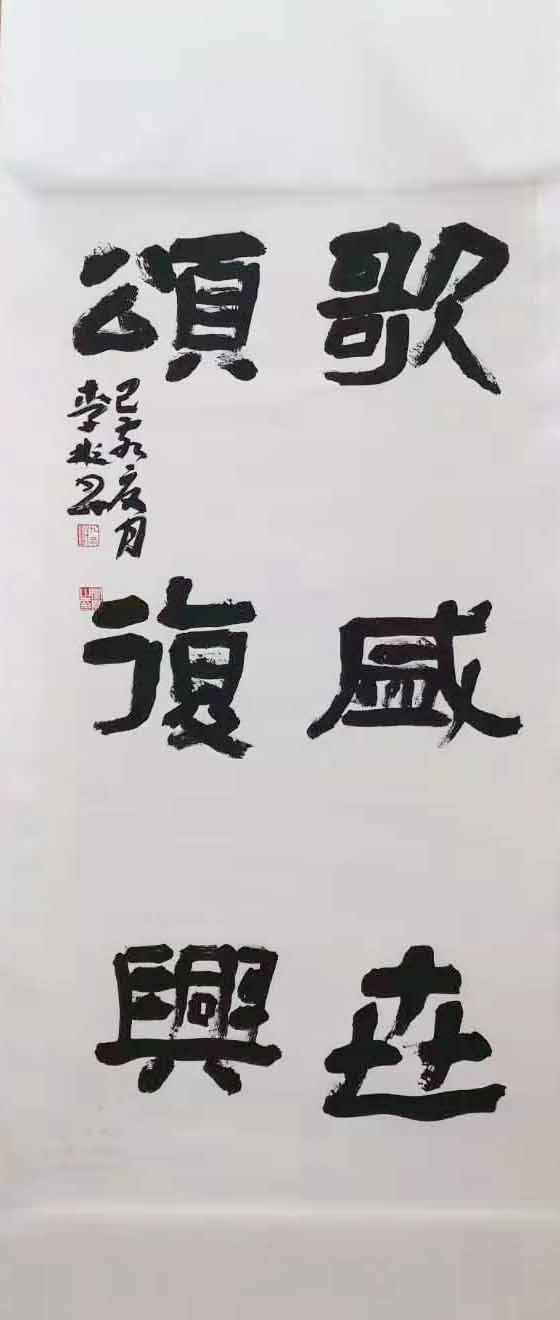 歌盛世
頌復興
己亥夏月
李